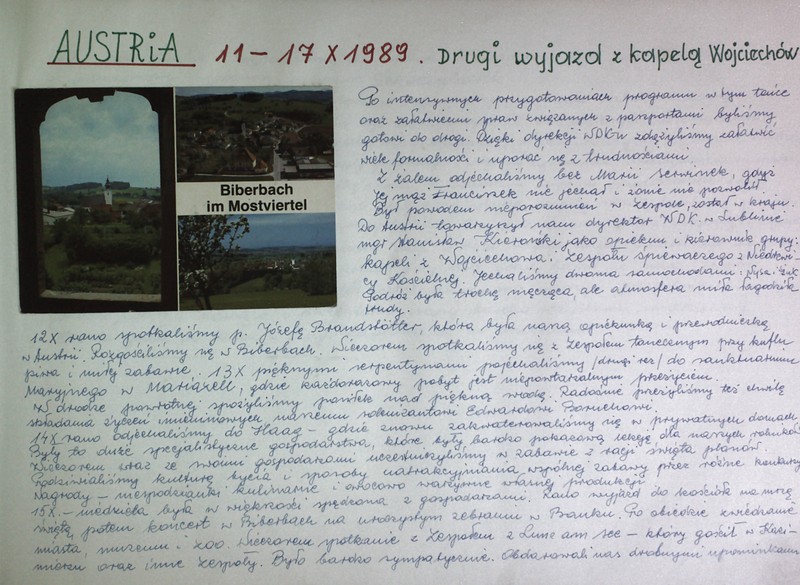 AUSTRiA 11–17 X 1989. Drugi wyjazd z kapelą Wojciechów
Biberbach
im Mostviertel
Po intensywnych przygotowaniach programu w tym tańce
oraz załatwieniu spraw związanych z paszportami byliśmy
gotowi do drogi. Dzięki dyrekcji WDK-u zdążyliśmy załatwić
wiele formalności i uporać się z trudnościami.
Z żalem odjechaliśmy bez Marii gdyż
Jej mąż Franciszek nie jechał i żonie nie pozwolił.
Był powodem nieporozumień w zespole, został w kraju.
Do Austrii towarzyszył nam dyrektor WDK w Lublinie
mgr Stanisław jako opiekun i kierownik grupy:
kapeli z Wojciechowa i Zespołu śpiewaczego z
Kościelnej. Jechaliśmy dwoma samochodami: Nysa i Żuk.
Podróż była trochę męcząca, ale atmosfera miła łagodziła
trudy.
12 X rano spotkaliśmy p. Józefę Brandstötter, która była naszą opiekunką i przewodniczką
w Austrii. Rozgościliśmy się w Biberbach. Wieczorem spotkaliśmy się z Zespołem tanecznym przy kuflu
piwa i miłej zabawie. 13 X pięknymi serpentynami pojechaliśmy /drugi raz/ do sanktuarium
Maryjnego w Mariazell, gdzie każdorazowy pobyt jest niepowtarzalnym przeżyciem.
W drodze powrotnej spożyliśmy posiłek nad piękną wodą. Radośnie przeżyliśmy też chwilę
składania życzeń imieninowych naszemu solenizantowi Edwardowi
14 X rano odjechaliśmy do Haag – gdzie znowu zakwaterowaliśmy się w prywatnych domach.
Były to duże specjalistyczne gospodarstwa, które były bardzo pokazową lekcją dla naszych rolników.
Wieczorem wraz ze swoimi gospodarzami uczestniczyliśmy w zabawie z racji święta plonów.
Podziwialiśmy kulturę bycia i sposoby uatrakcyjniania wspólnej zabawy przez różne konkursy
Nagrody – niespodzianki kulinarne i owocowo warzywne własnej produkcji.
15 X – niedziela była w większości spędzona z gospodarzami. Rano wyjazd do kościoła na mszę
świętą, potem koncert w Biberbach na uroczystym zebraniu w Banku. Po obiedzie zwiedzanie
miasta, muzeum i zoo. Wieczorem spotkanie z Zespołem z am see – który gościł w Kazi-
mierzu oraz inne Zespoły. Było bardzo sympatycznie. Obdarowali nas drobnymi upominkami